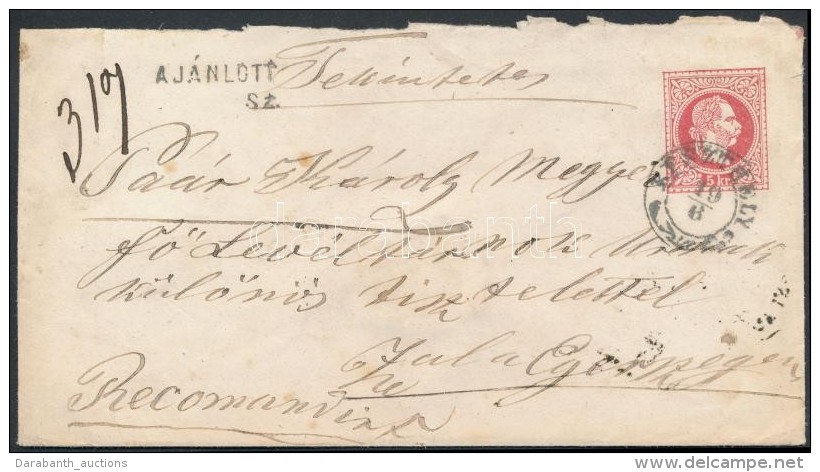 319
AJÁNLOTT
Sz.
Tekintetes
Saár Károly Megyei
fő Levéltárnok Urnak
különös tisztelettel
Zala Egerszegen
Recomandirt
5 kr
19
6
darabanth
Darabanth_auctions
www.delcampe.net